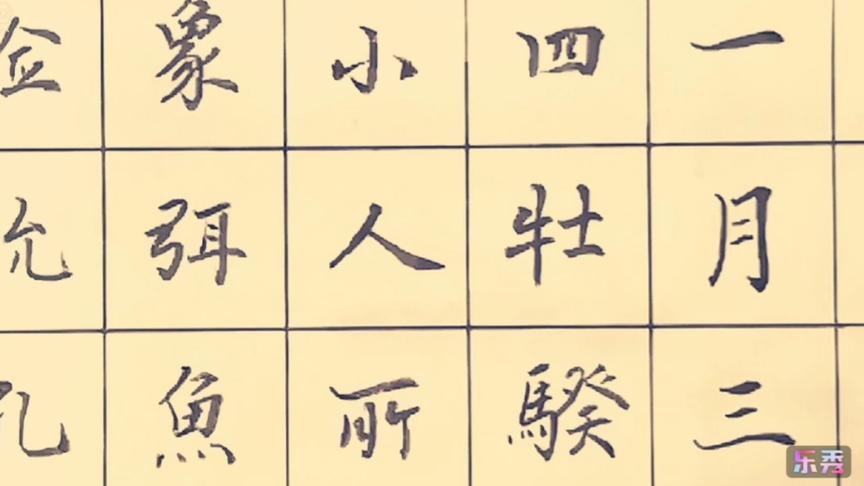 一月三
四牡騤
小人所
象弭魚
乐秀